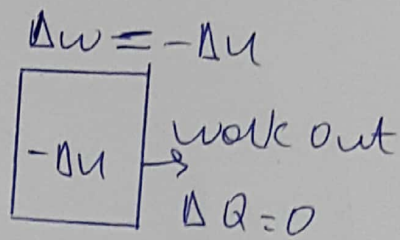 Δw = -Δu
-Δu → work out
ΔQ = 0